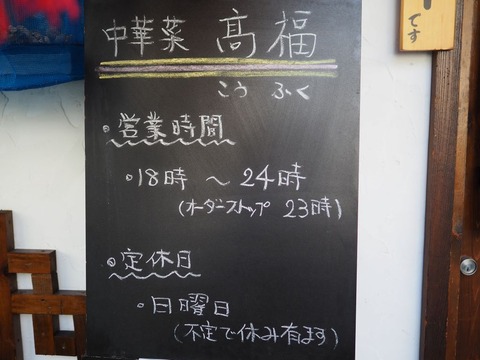 中華菜 高福
こう ふく
・営業時間
・18時 〜 24時
(オーダーストップ 23時)
・定休日
・日曜日
(不定で休み有ます)
です